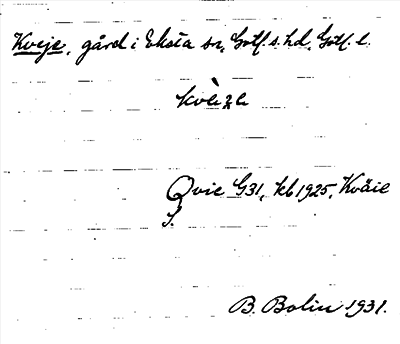 Kveje, gård i Eksta sn, Gotl. s. hd, Gotl. l.
kvèȥe
Qvie G31, kb 1925, Kväie
S.
B. Bolin 1931.